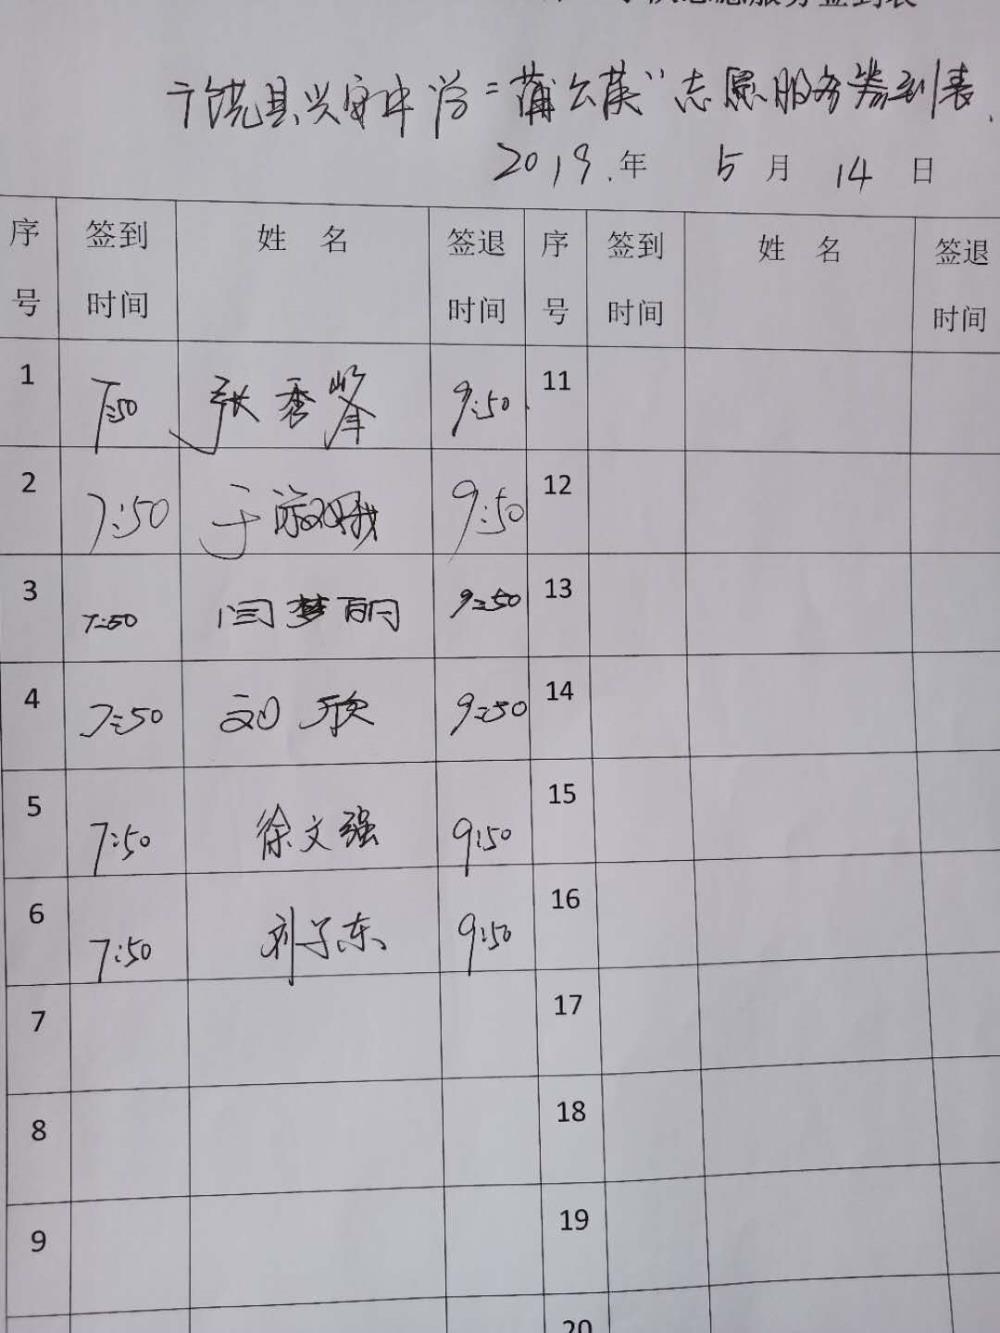 志愿服务签到表
广饶县兴安中学“蒲公英”志愿服务签到表
2019.年 5月 14日
序号 签到时间 姓 名 签退时间 序号 签到时间 姓 名 签退时间
1 7:50 张秀峰 9:50 11
2 7:50 于 9:50 12
3 7:50 闫梦丽 9:50 13
4 7:50 刘欣 9:50 14
5 7:50 徐文强 9:50 15
6 7:50 刘子东 9:50 16
7 17
8 18
9 19
20